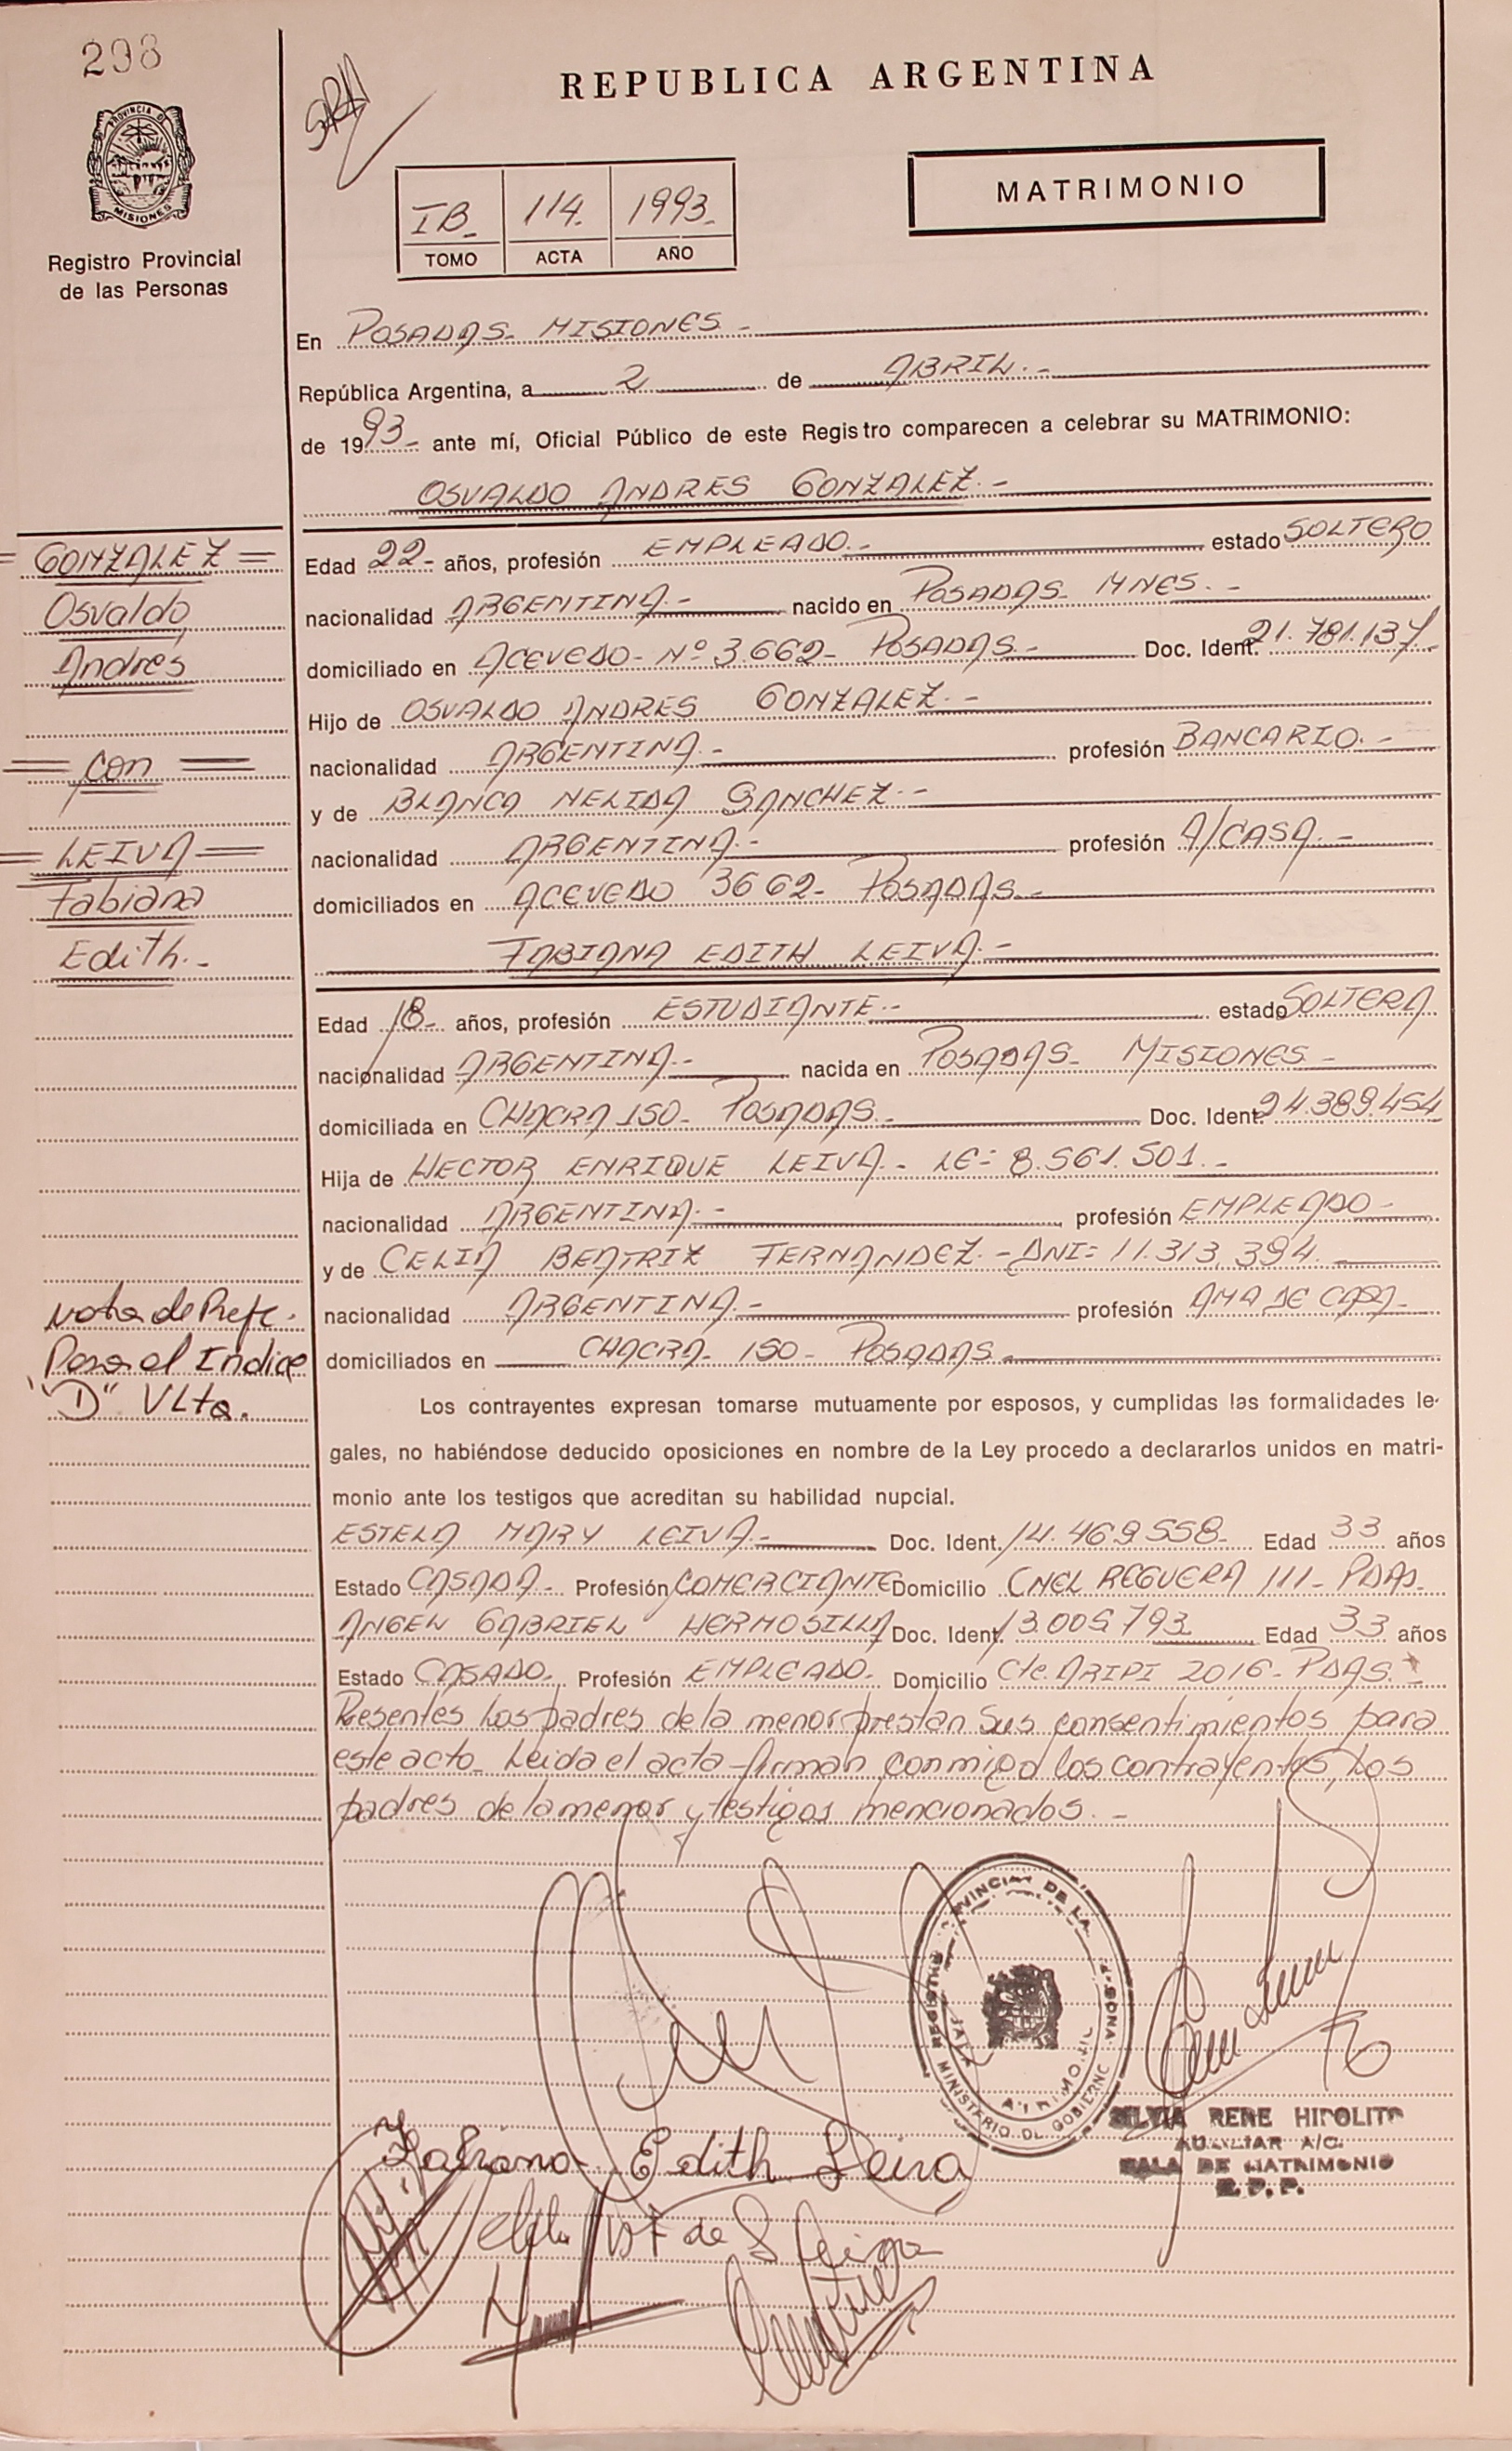 298
PROVINCIA D
MISIONES
Registro Provincial
de las Personas
REPUBLICA ARGENTINA
MATRIMONIO
IB_ 114. 1993_
TOMO ACTA AÑO
En POSADAS_ MISIONES_
República Argentina, a 2 de ABRIL._
de 1993_ ante mí, Oficial Público de este Registro comparecen a celebrar su MATRIMONIO:
OSVALDO ANDRES GONZALEZ._
= GONZALEZ =
Osvaldo
Andrés
= con =
= LEIVA =
Fabiana
Edith._
Edad 22_ años, profesión EMPLEADO._ estado SOLTERO
nacionalidad ARGENTINA._ nacido en POSADAS_ MNES._
domiciliado en ACEVEDO_ Nº 3.662_ POSADAS._ Doc. Ident. 21.781.137_
Hijo de OSVALDO ANDRES GONZALEZ._
nacionalidad ARGENTINA._ profesión BANCARIO._
y de BLANCA NELIDA SANCHEZ._
nacionalidad ARGENTINA._ profesión A/CASA._
domiciliados en ACEVEDO 3662_ POSADAS._
FABIANA EDITH LEIVA._
Edad 18_ años, profesión ESTUDIANTE._ estado SOLTERA
nacionalidad ARGENTINA._ nacida en POSADAS_ MISIONES_
domiciliada en CHACRA 150_ POSADAS._ Doc. Ident. 24.389.454
Hija de HECTOR ENRIQUE LEIVA._ LE= 8.561.501._
nacionalidad ARGENTINA._ profesión EMPLEADO_
y de CELIA BEATRIZ FERNANDEZ._ DNI= 11.313.394.
nacionalidad ARGENTINA._ profesión AMA DE CASA_
domiciliados en CHACRA_ 150_ POSADAS.
Nota de Refe.
Para el Indice
"D" Vlta.
Los contrayentes expresan tomarse mutuamente por esposos, y cumplidas las formalidades le-
gales, no habiéndose deducido oposiciones en nombre de la Ley procedo a declararlos unidos en matri-
monio ante los testigos que acreditan su habilidad nupcial.
ESTELA MARY LEIVA._ Doc. Ident. 14.469.558_ Edad 33 años
Estado CASADA_ Profesión COMERCIANTE Domicilio CNEL REGUERA 111_ PDAS_
ANGEL GABRIEL HERMOSILLA Doc. Ident. 13.005.793 Edad 33 años
Estado CASADO_ Profesión EMPLEADO_ Domicilio Cte. ARIPI 2016_ PDAS._
Presentes Los padres de la menor prestan sus consentimientos para
este acto_ Leida el acta firman conmigo los contrayentes, Los
padres de la menor y testigos mencionados._
MINISTERIO DE GOBIERNO
SILVIA RENE HIPOLITO
AUXILIAR A/C.
SALA DE MATRIMONIO
R.P.P.
Fabiana Edith Leiva